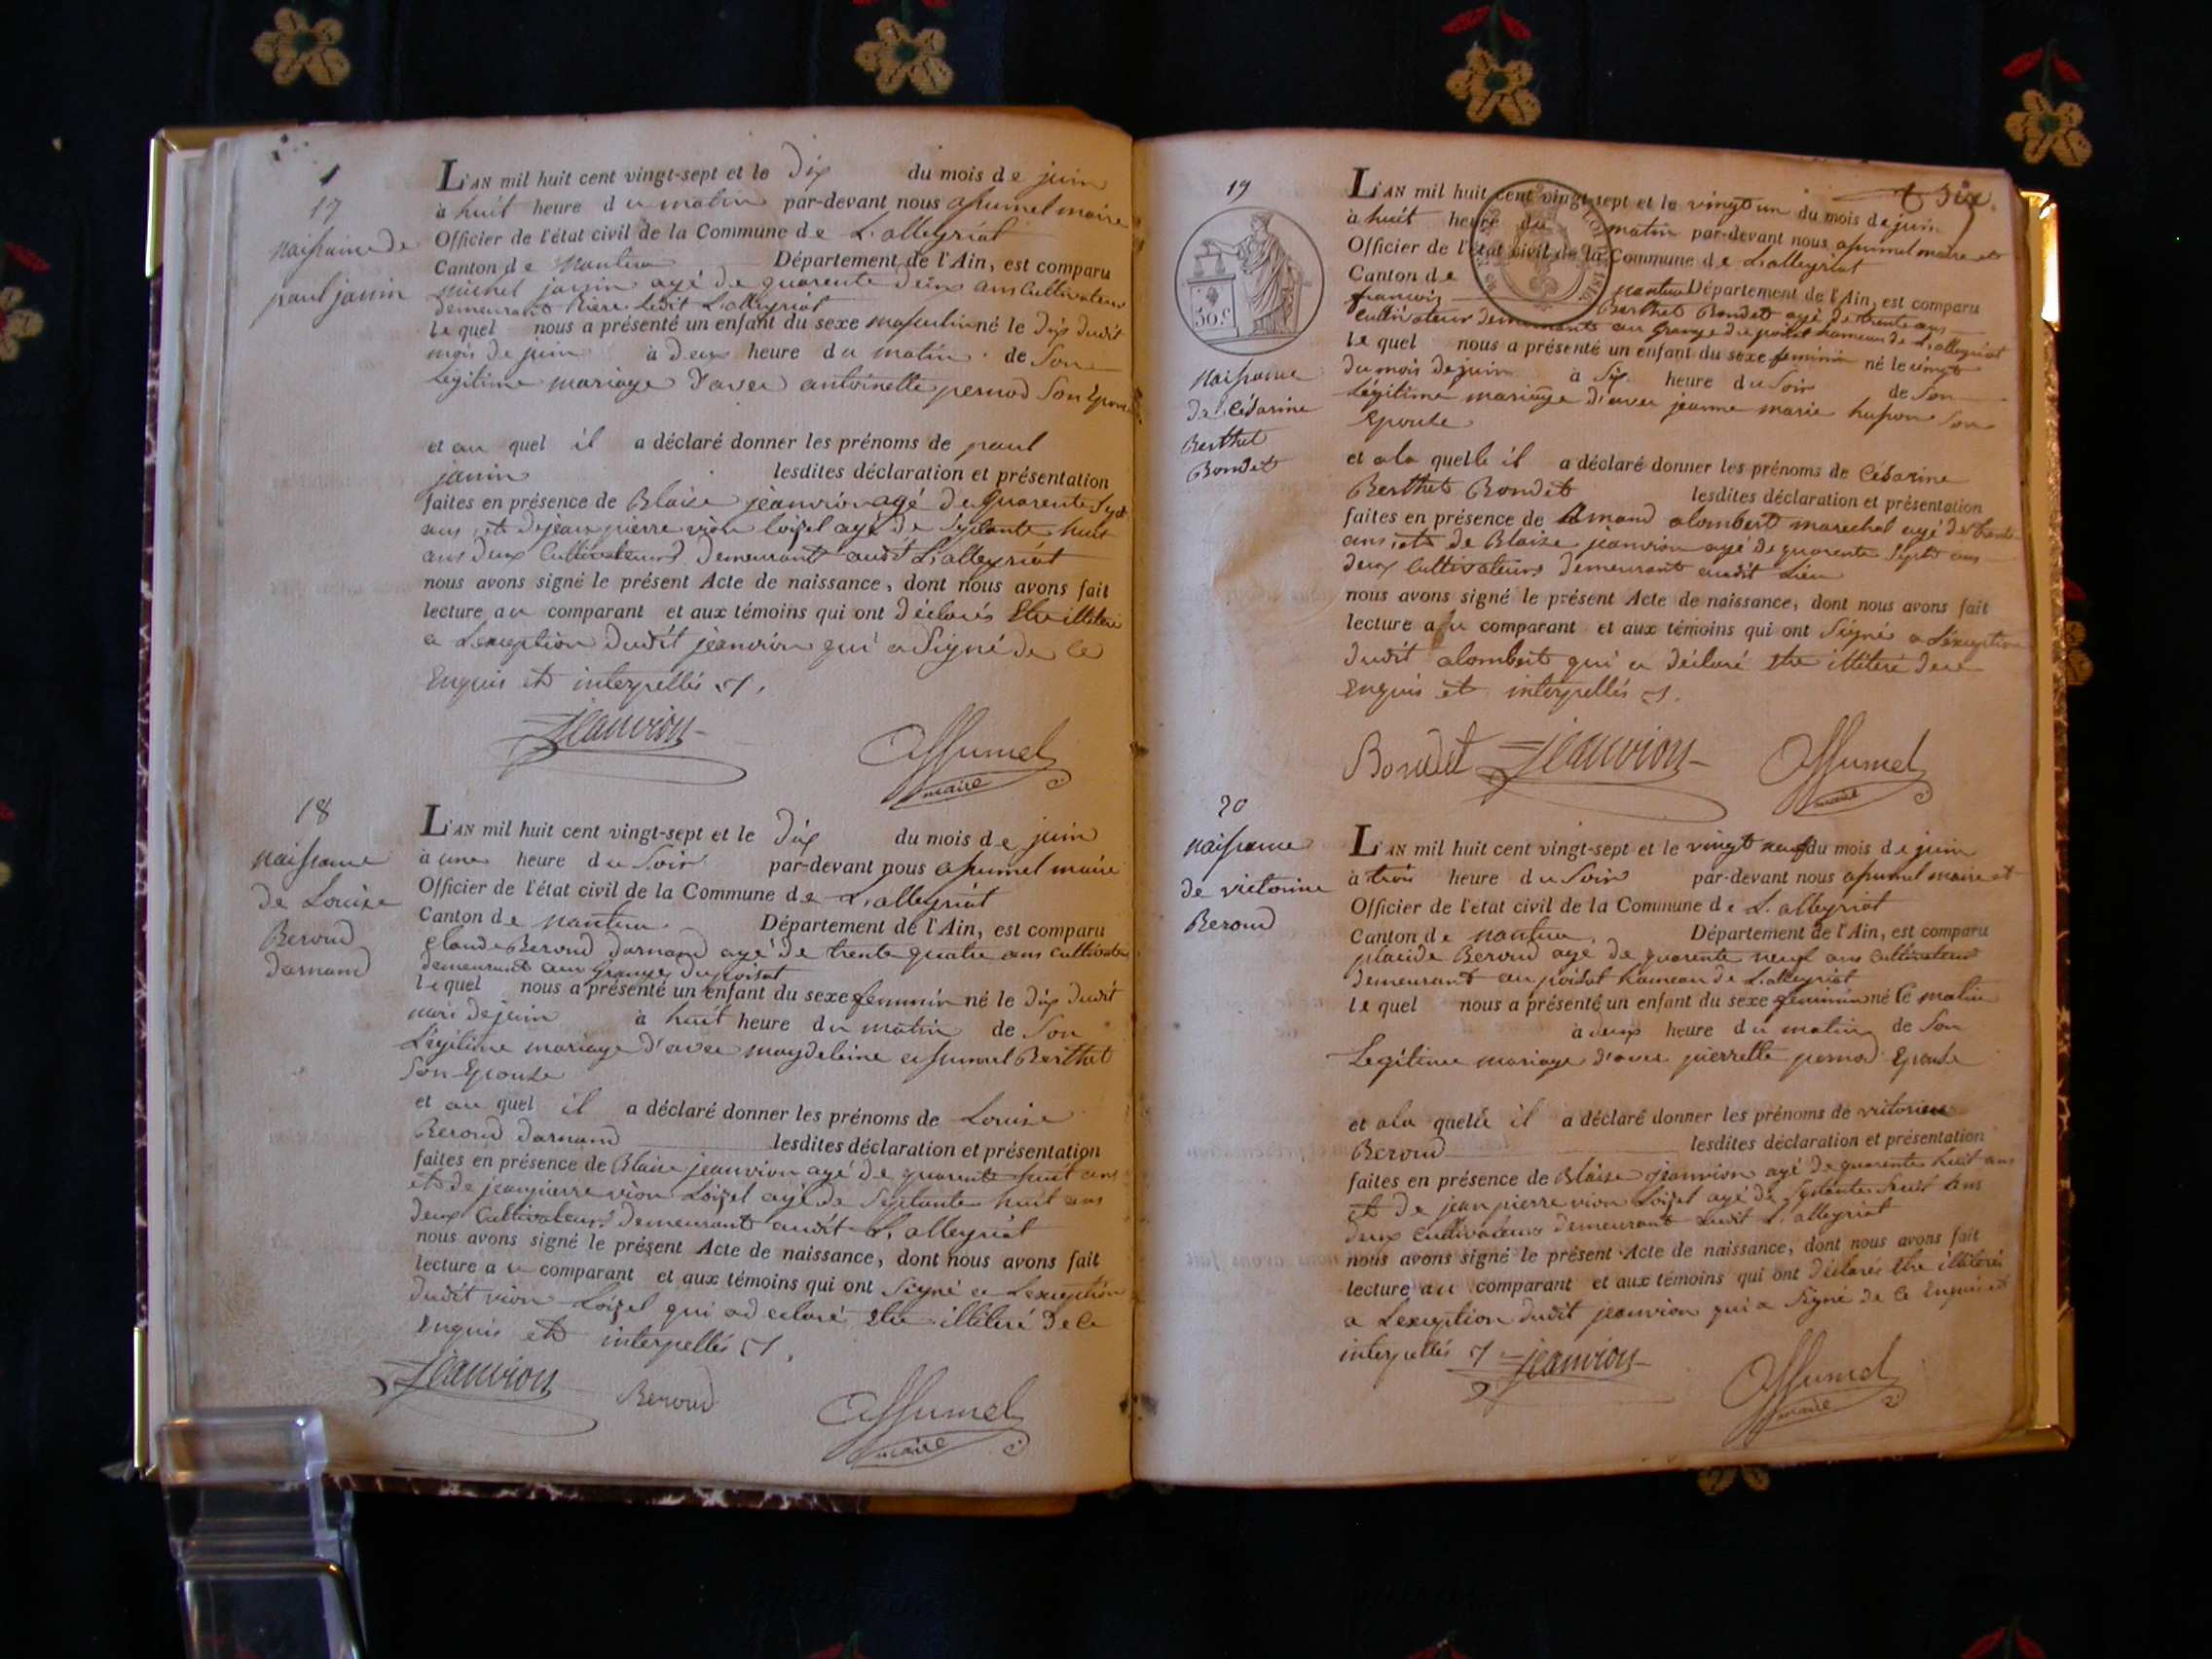 17
naissance de
paul janin
L'AN mil huit cent vingt-sept et le dix du mois de juin
à huit heure du matin par-devant nous assumel maire
Officier de l'état civil de la Commune de L'alleyriat
Canton de nantua Département de l'Ain, est comparu
michel janin agé de quarente deux ans Cultivateur
demeurant Riere ledit L'alleyriat
le quel nous a présenté un enfant du sexe masculin né le dix dudit
mois de juin à deux heure du matin de Son
Légitime mariage d'avec antoinette pernod Son Epouse
et au quel il a déclaré donner les prénoms de paul
janin lesdites déclaration et présentation
faites en présence de Blaise jeanvion agé de quarente Sept
ans et de jean pierre vion loizel agé de Septante huit
ans deux Cultivateurs demeurant audit L'alleyriat
nous avons signé le présent Acte de naissance, dont nous avons fait
lecture au comparant et aux témoins qui ont déclarés Etre illiteré
a Lexception dudit jeanvion qui a Signé de ce
Enquis et interpellés
Jeanvion Assumel
maire
18
naissance
de Louise
Beroud
darnand
L'AN mil huit cent vingt-sept et le dix du mois de juin
à une heure du Soir par-devant nous assumel maire
Officier de l'état civil de la Commune de L'alleyriat
Canton de nantua Département de l'Ain, est comparu
Claude Beroud darnand agé de trente quatre ans cultivateur
demeurant aux Granges du poisat
le quel nous a présenté un enfant du sexe feminin né le dix dudit
mois de juin à huit heure du matin de Son
Légitime mariage d'avec magdeleine assumel Berthet
Son Epouse
et au quel il a déclaré donner les prénoms de Louise
Beroud darnand lesdites déclaration et présentation
faites en présence de Blaise jeanvion agé de quarente huit ans
et de jean pierre vion Loizel agé de Septante huit ans
deux Cultivateurs demeurant audit L'alleyriat
nous avons signé le présent Acte de naissance, dont nous avons fait
lecture au comparant et aux témoins qui ont Signé a Lexception
dudit vion Loizel qui a declaré Etre illiteré de ce
enquis et interpellés
Jeanvion Beroud Assumel
maire
19
50 c
naissance
de Césarine
Berthet
Bondet
Six
L'AN mil huit cent vingt-sept et le vingt un du mois de juin
à huit heure du matin par-devant nous assumel maire et
Officier de l'état civil de la Commune de L'alleyriat
Canton de nantua Département de l'Ain, est comparu
francois Berthet Bondet agé de trente ans
Cultivateur demeurants au Grange du poisat hameau de L'alleyriat
le quel nous a présenté un enfant du sexe feminin né le vingt
du mois de juin à Six heure du Soir de Son
Légitime mariage d'avec jeanne marie Son
Epouse
et a la quelle il a déclaré donner les prénoms de Césarine
Berthet Bondet lesdites déclaration et présentation
faites en présence de Amand alombert marechal agé de trente
ans, et de Blaise jeanvion agé de quarente Sept ans
deux Cultivateurs demeurant audit Lieu
nous avons signé le présent Acte de naissance, dont nous avons fait
lecture au comparant et aux témoins qui ont Signé a L'exception
dudit alombert qui a déclaré Etre illiteré de ce
Enquis et interpellés
Bondet Jeanvion Assumel
maire
20
naissance
de victorine
Beroud
L'AN mil huit cent vingt-sept et le vingt neuf du mois de juin
à trois heure du Soir par-devant nous assumel maire et
Officier de l'état civil de la Commune de L'alleyriat
Canton de nantua Département de l'Ain, est comparu
placide Beroud agé de quarente neuf ans Cultivateur
demeurant au poisat hameau de L'alleyriat
le quel nous a présenté un enfant du sexe feminin né le matin
à deux heure du matin de Son
Legitime mariage d'avec pierrette pernod Epouse
et a la quelle il a déclaré donner les prénoms de victorine
Beroud lesdites déclaration et présentation
faites en présence de Blaise jeanvion agé de quarente huit ans
et de jean pierre vion Loizel agé de Septante huit ans
deux Cultivateurs demeurant audit L'alleyriat
nous avons signé le présent Acte de naissance, dont nous avons fait
lecture au comparant et aux témoins qui ont déclarés Etre illiterés
a Lexception dudit jeanvion qui a Signé de ce Enquis et
interpellés
Jeanvion Assumel
maire